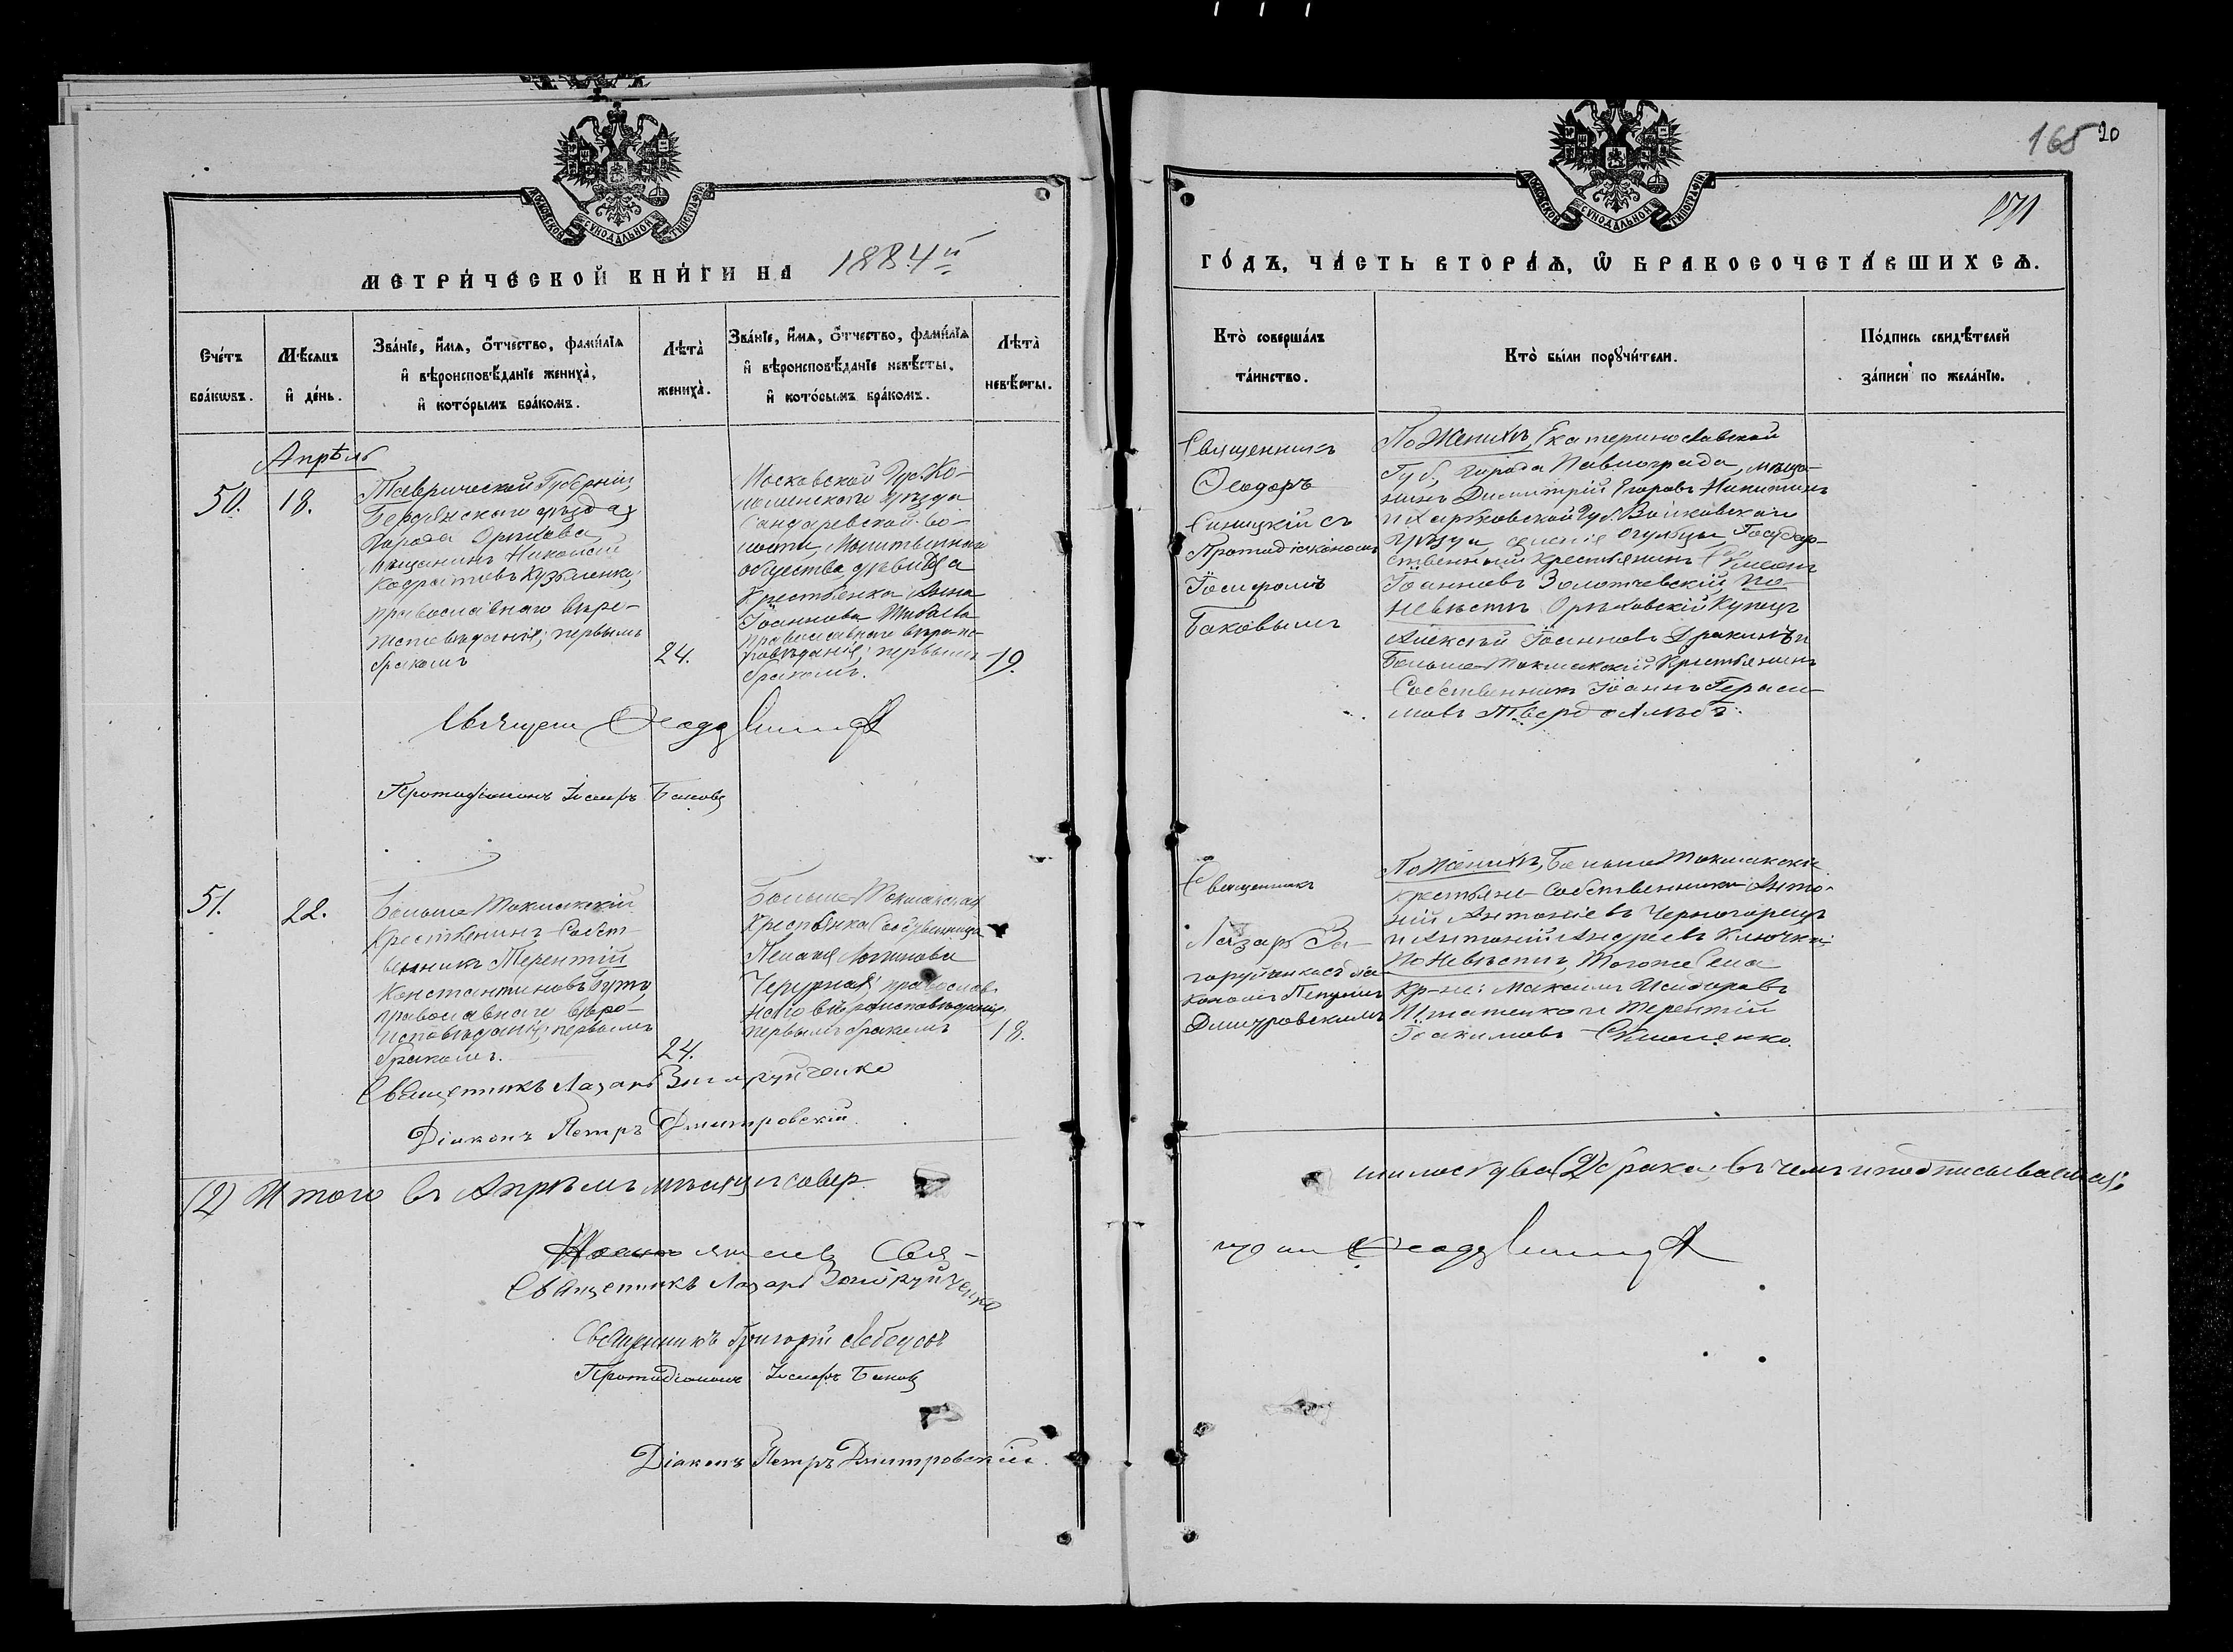 МЕТРИ́ЧЕСКОЙ КНИ́ГИ НА 1884й
Сче́тъ бра́кѡвъ.
Мѣ́сѧцъ и҆ де́нь.
Зва́нїе, и҆́мѧ, ѻ҆́тчество, фамѝлїѧ и҆ вѣроисповѣ́данїе жениха̀, и҆ кото́рымъ бра́комъ.
Лѣта̀ жениха̀.
Зва́нїе, и҆́мѧ, ѻ҆́тчество, фамѝлїѧ и҆ вѣроисповѣ́данїе невѣ́сты, и҆ кото́рымъ бра́комъ.
Лѣта̀ невѣ́сты.
Апрѣль
50.
18.
Таврической Губерніи,
Бердянскаго уѣзда,
Города Орѣхова,
мѣщанинъ Николай
Кодратовъ Кузьменко,
православнаго вѣро-
исповѣданія; первымъ
бракомъ
24.
Московской Губ. Ко-
ломенскаго уѣзда
Сандаревской во-
лости,
общества, дѣвица
Крестьянка Анна
Іоаннова
православнаго вѣроис-
повѣданія; первымъ
бракомъ.
19.
Священ Ѳеодоръ Синицкій
Протодіаконъ Іосифъ Баковъ
51.
22.
Больше Токмакскій
Крестьянинъ Собст-
венникъ Терентій
Константиновъ Бутъ,
православнаго вѣро-
исповѣданія; первымъ
бракомъ.
24.
Больше Токмакская
Крестьянка Собственница
Пелагія Логинова
Чепурная православ-
наго вѣроисповѣданія,
первымъ бракомъ
18.
Священникъ Лазарь Загоруйченко
Діаконъ Петръ Дмитровскій.
(2) Итого въ Апрѣлѣ мѣсяцѣ совер-
Свя-
Священникъ Лазарь Загоруйченко
Священникъ Григорій Лебедевъ
Протодіаконъ Іосифъ Баковъ
Діаконъ Петръ Дмитровскій.
165 20
ГО́ДЪ, ЧА́СТЬ ВТОРА́Ѧ, Ѽ БРАКОСОЧЕТА́ВШИХСѦ.
Кто̀ соверша́лъ та́инство.
Кто̀ бы́ли порꙋчи́тели.
По́дпись свидѣ́телей за́писи по жела́нїю.
Священникъ
Ѳеодоръ
Синицкій съ
Протодіакономъ
Іосифомъ
Баковымъ
По Женихѣ, Екатеринославской
Губ., города Павлограда, мѣща-
нинъ Димитрій Егоровъ Никитинъ
и Харьковской Губ. Валковскаго
уѣзда, селенія Огульцы, Государ-
ственный Крестьянинъ Симеонъ
Іоанновъ Золотчевскій, По
невѣстѣ Орѣховскій Купецъ
Алексѣй Іоанновъ Дракинъ и
Больше Токмакскій Крестьянинъ
Собственникъ Іоаннъ Гераси-
мовъ Твердохлѣбъ.
Священникъ
Лазарь За-
горуйченко съ діа-
кономъ Петромъ
Дмитровскимъ
По Женихѣ, Больше Токмакскіе
крестьяне Собственники Анто-
ній Антоніевъ Черногорецъ
и Антоній Андреевъ Ключка;
По Невѣстѣ, того же Села
Кр-не: Максимъ Исидоровъ
Игнатенко и Терентій
Іоакимовъ Симоненко.
шилось два (2) брака; въ чемъ и подписываемся;
Ѳеодоръ Синицкій